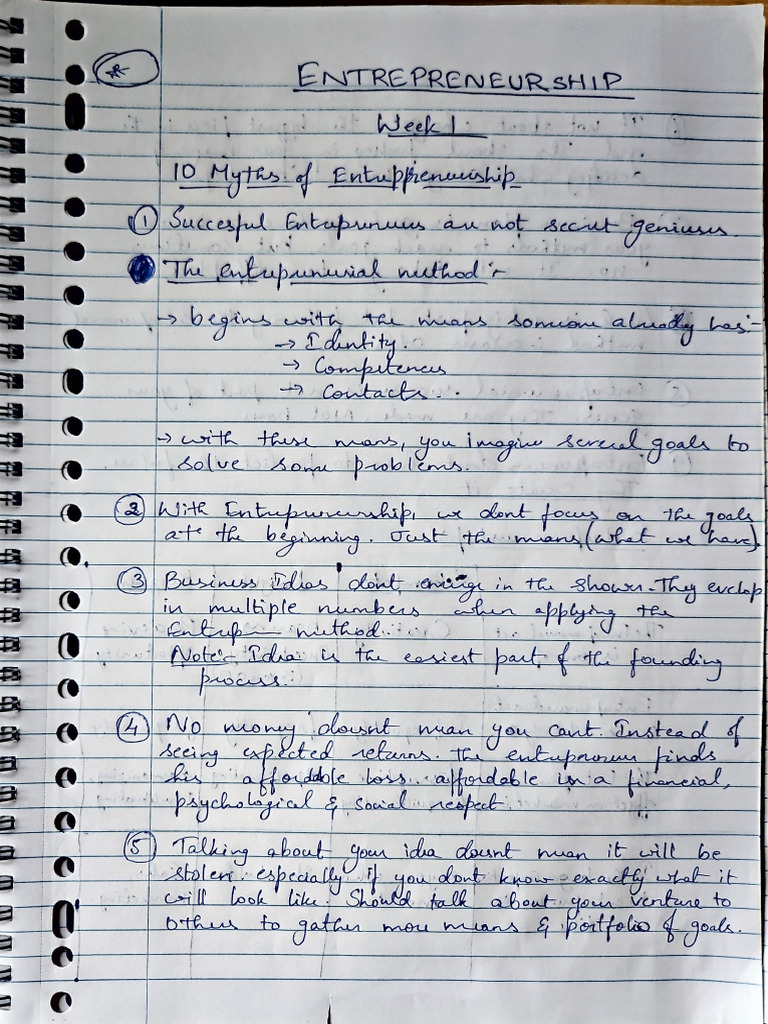 ENTREPRENEURSHIP
Week 1
10 Myths of Entruppreneuership
① Succesful Entrupreneurs are not secret geniuses.
The entrupreneurial method :-
→ begins with the means someone already has:-
→ Identity.
→ Competences
→ Contacts.
→ with these means, you imagine several goals to
solve some problems.
② With Entrupreneurship, we dont focus on the goals
at the beginning. Just the means (what we have).
③ Business Ideas dont emerge in the shower. They evelop
in multiple numbers when applying the
Entrup— method.
Note:- Idea is the easiest part of the founding
process.
④ No money doesnt mean you cant. Instead of
seeing expected returns. The entrupreneur finds
his affordable loss. affordable in a financial,
psychological & social respect.
⑤ Talking about your idea doesnt mean it will be
stolen. especially if you dont know exactly what it
will look like. Should talk about your venture to
others to gather more means & portfolio of goals.